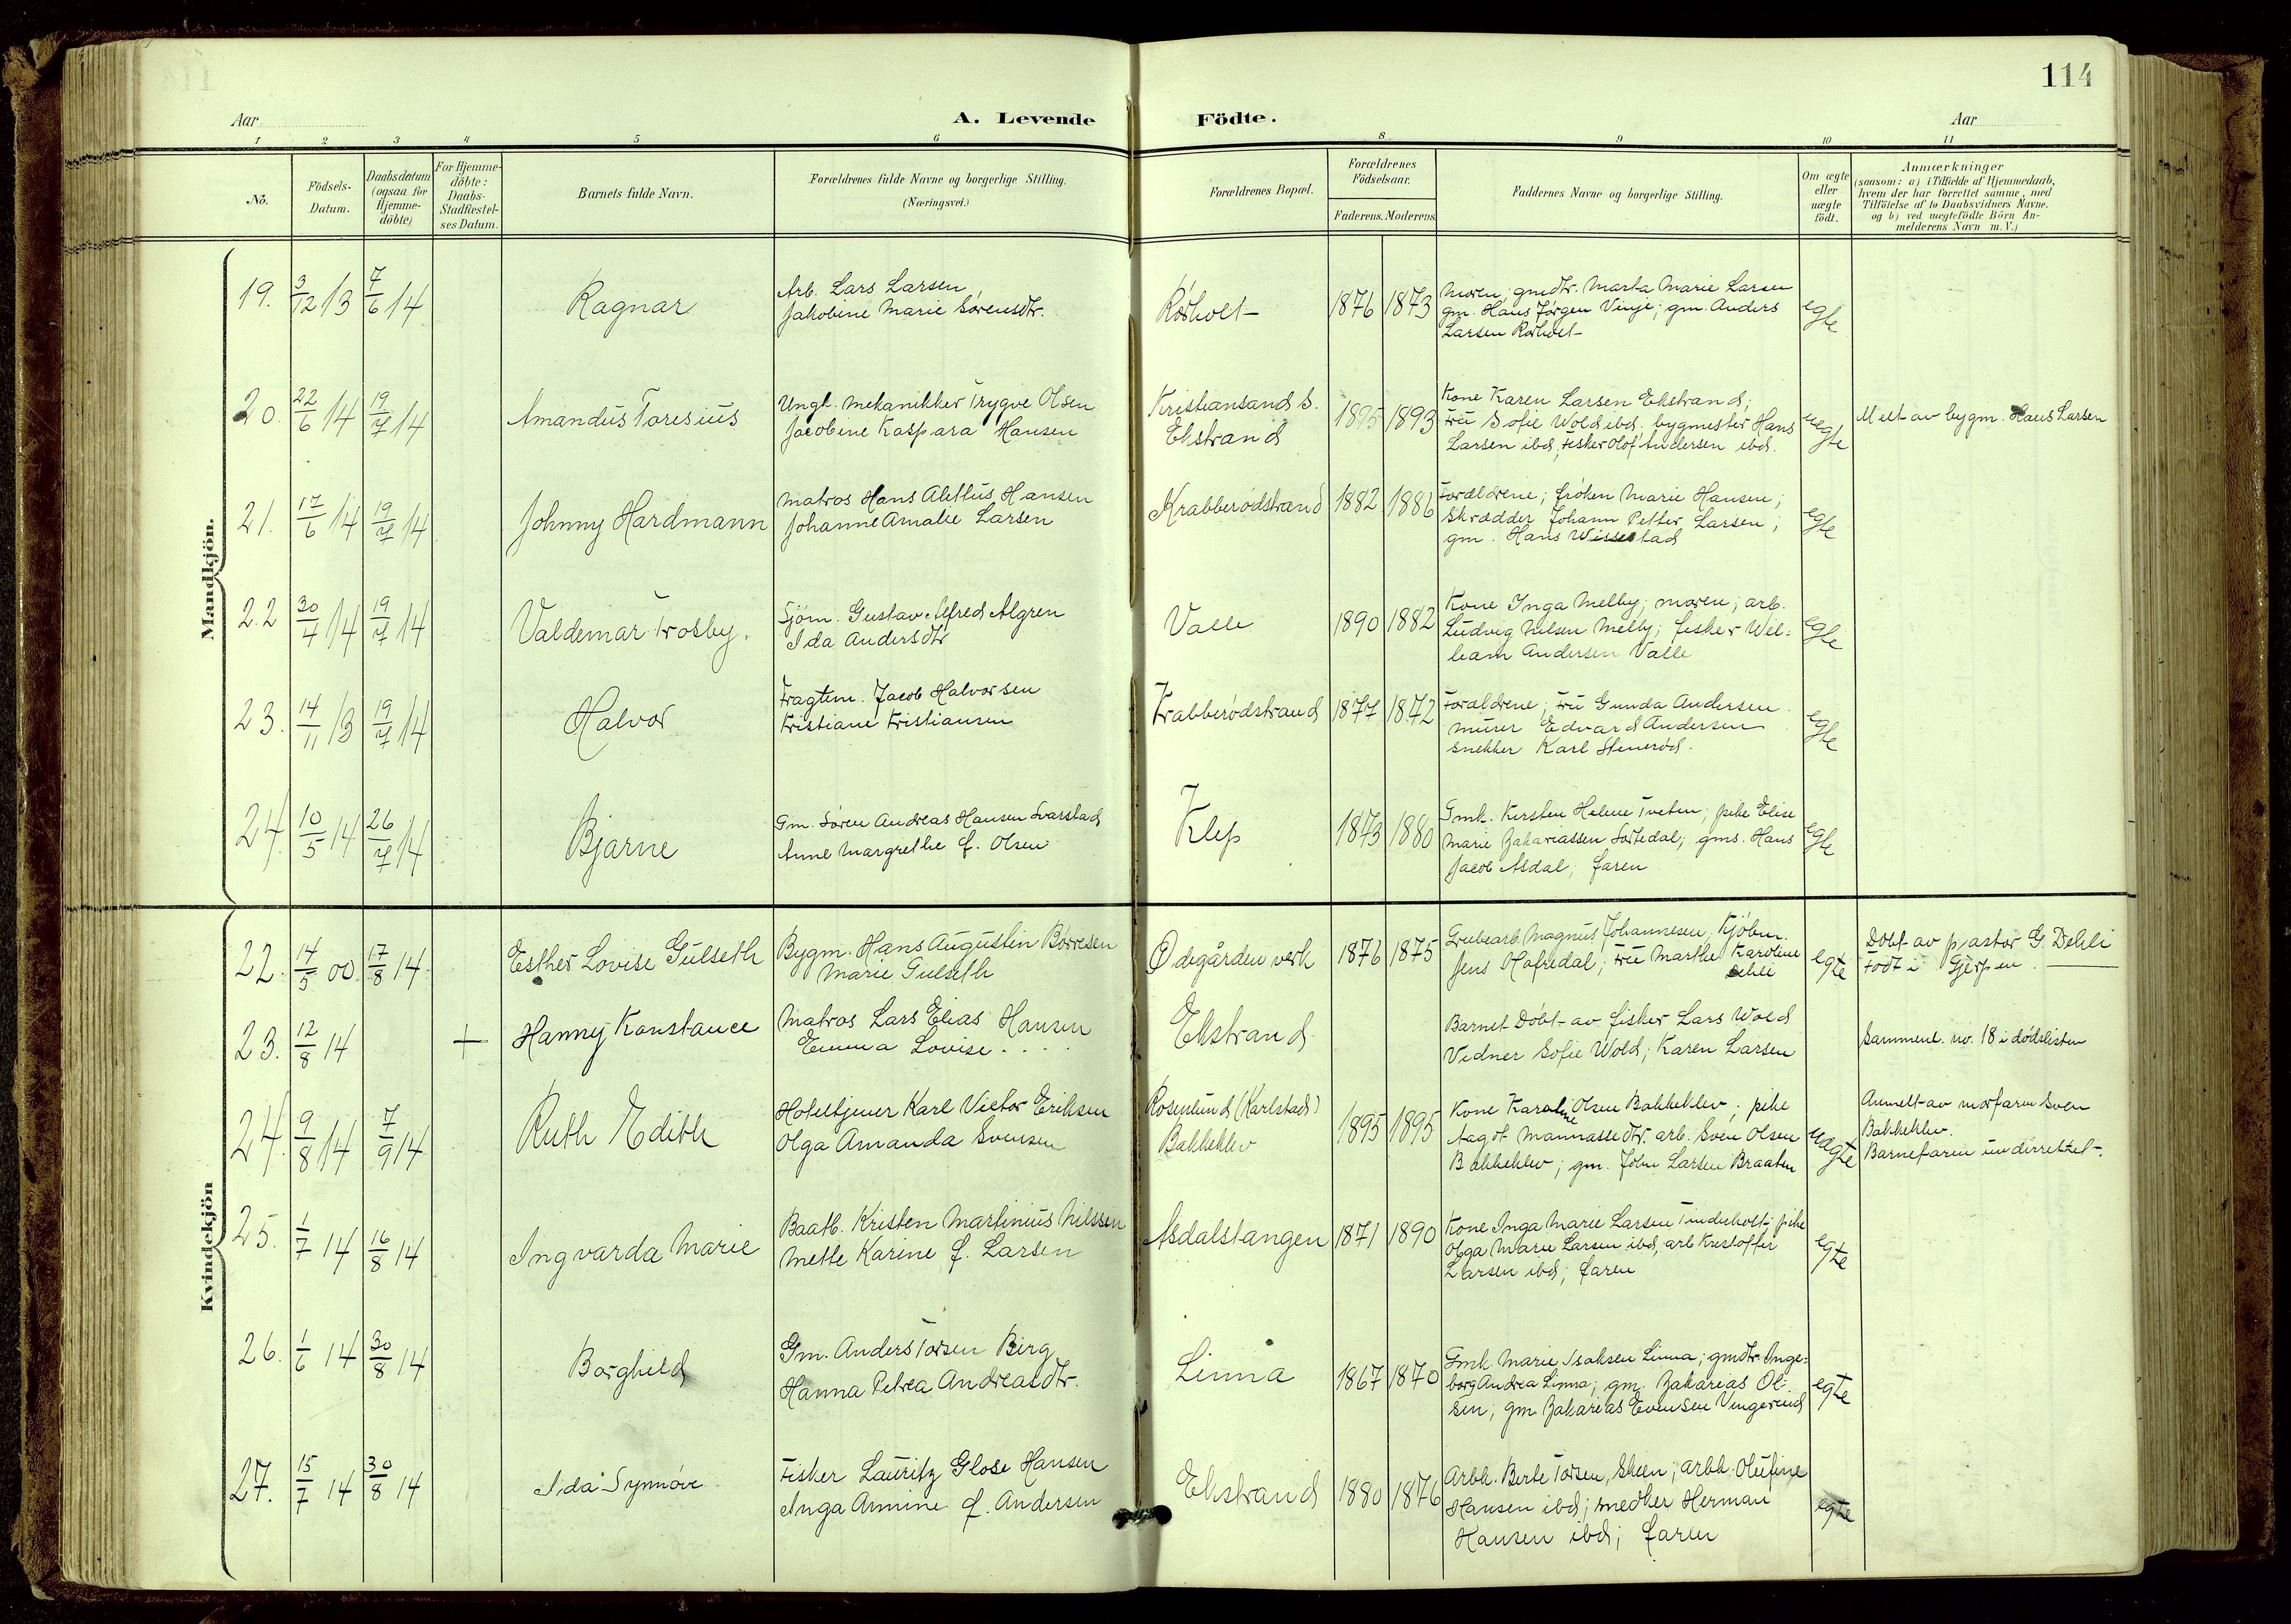 114
Aar
A. Levende Födte.
Aar
1 2 3 4 5 6 8 9 10 11
No.
Födsels-
Datum.
Daabsdatum
(ogsaa for
Hjemme-
döbte)
For Hjemme-
döbte:
Daabs-
Stadfæstel-
ses Datum.
Barnets fulde Navn.
Forældrenes fulde Navne og borgerlige Stilling.
(Næringsvei.)
Forældrenes Bopæl.
Forældrenes
Födselsaar.
Faderens. Moderens.
Faddernes Navne og borgerlige Stilling.
Om ægte
eller
uægte
födt.
Anmærkninger
(saasom: a) i Tilfælde af Hjemmedaab,
hvem der har forrettet samme, med
Tilföielse af to Daabsvidners Navne.
og b) ved uægtefödte Börn An-
melderens Navn m. V.)
Mandkjön.
19. 3/12 13 7/6 14
Ragnar
Arb. Lars Larsen
Jakobine Marie Sørensdtr.
Rørholt
1876 1873
Moren; gmdtr. Marta Marie Larsen
gm. Hans Jørgen Vinje; gm. Anders
Larsen Rørholt
egte
20. 22/6 14 19/7 14
Amandus Toresius
Ungk. Mekanikker Trygve Olsen
Jacobine Kaspara Hansen
Kristiansand S.
Ekstrand
1895 1893
Kone Karen Larsen Ekstrand;
Fru Sofie Wold ibd. bygmester Hans
Larsen ibd, Fisker Olof Andersen ibd.
uegte
Melt av bygm. Hans Larsen
21. 17/6 14 19/7 14
Johnny Hardmann
Matros Hans Alettus Hansen
Johanne Amalie Larsen
Krabberødstrand
1882 1886
Forældrene; frøken Marie Hansen;
Skrædder Johann Petter Larsen;
gm. Hans Wissestad
egte
22 30/4 14 19/7 14
Valdemar Frosby.
Sjøm. Gustav Alfred Algren
Ida Andersdtr
Valle
1890 1882
Kone Inga Melby; moren; arb.
Ludvig Nilsen Melby; fisker Wil-
liam Andersen Valle
egte
23. 14/11 13 19/7 14
Halvor
Fragtem. Jacob Halvorsen
Kristiane Kristiansen
Krabberødstrand
1877 1872
Forældrene; Fru Gunda Andersen
murer Edvard Andersen
snekker Karl Stenerød.
egte
24. 10/5 14 26/7 14
Bjarne
Gm. Søren Andreas Hansen Svarstad
Anne Margrethe f. Olsen
Klep
1873 1880
Gmk. Kirsten Helene Tveten; pike Elise
Marie Zakariassen Sortedal; gms. Hans
Jacob Asdal; faren
egte
Kvindekjön
22. 14/5 00 17/8 14
Esther Lovise Gulseth
Bygm. Hans Augustin Børresen
Marie Gulseth
Ødegården verk
1876 1875
Grubearb. Magnus Johannesen; Kjøbm.
Jens Hofredal; Fru Marthe Karoline
Dehli
egte
Døbt av pastor G. Dehli
Født i Gjerpen.
23. 12/8 14 +
Hanny Konstance
Matros Lars Elias Hansen
Emma Lovise . . . .
Ekstrand
Barnet Døbt av fisker Lars Wold
Vidner Sofie Wold; Karen Larsen
Sammenl. no. 18 i dødslisten
24. 9/8 14 7/9 14
Ruth Edith
Hoteltjener Karl Victor Eriksen
Olga Amanda Svensen
Rosenlund (Karlstad)
Bakkeklev
1895 1895
Kone Karoline Olsen Bakkeklev; pike
Aagot Mannassedtr. arb. Sven Olsen
Bakkeklev; gm. John Larsen Braaten
uægte
Anmelt av morfaren Sven
Bakkeklev.
Barnefaren underrettet.
25. 1/7 14 16/8 14
Ingvarda Marie
Baatb. Kristen Martinius Nilssen
Mette Karine f. Larsen
Asdalstangen
1871 1890
Kone Inga Marie Larsen Tinderholt; pike
Olga Marie Larsen ibd, arb Kristoffer
Larsen ibd; faren
egte
26. 1/6 14 30/8 14
Borghild
Gm. Anders Torsen Berg
Hanna Petrea Andreasdtr.
Linna
1867 1870
Gmk. Marie Isaksen Linna; gmdtr. Inge-
borg Andrea Linna; gm. Zakarias Ol-
sen; gm. Zakarias Evensen Vingerud
egte
27. 15/7 14 30/8 14
Ida Synnøve
Fisker Lauritz Glose Hansen
Inga Annine f. Andersen
Ekstrand
1880 1876
Arbk. Berte Torsen, Skien; arbk. Olufine
Hansen ibd; snedker Herman
Hansen ibd; faren
egte